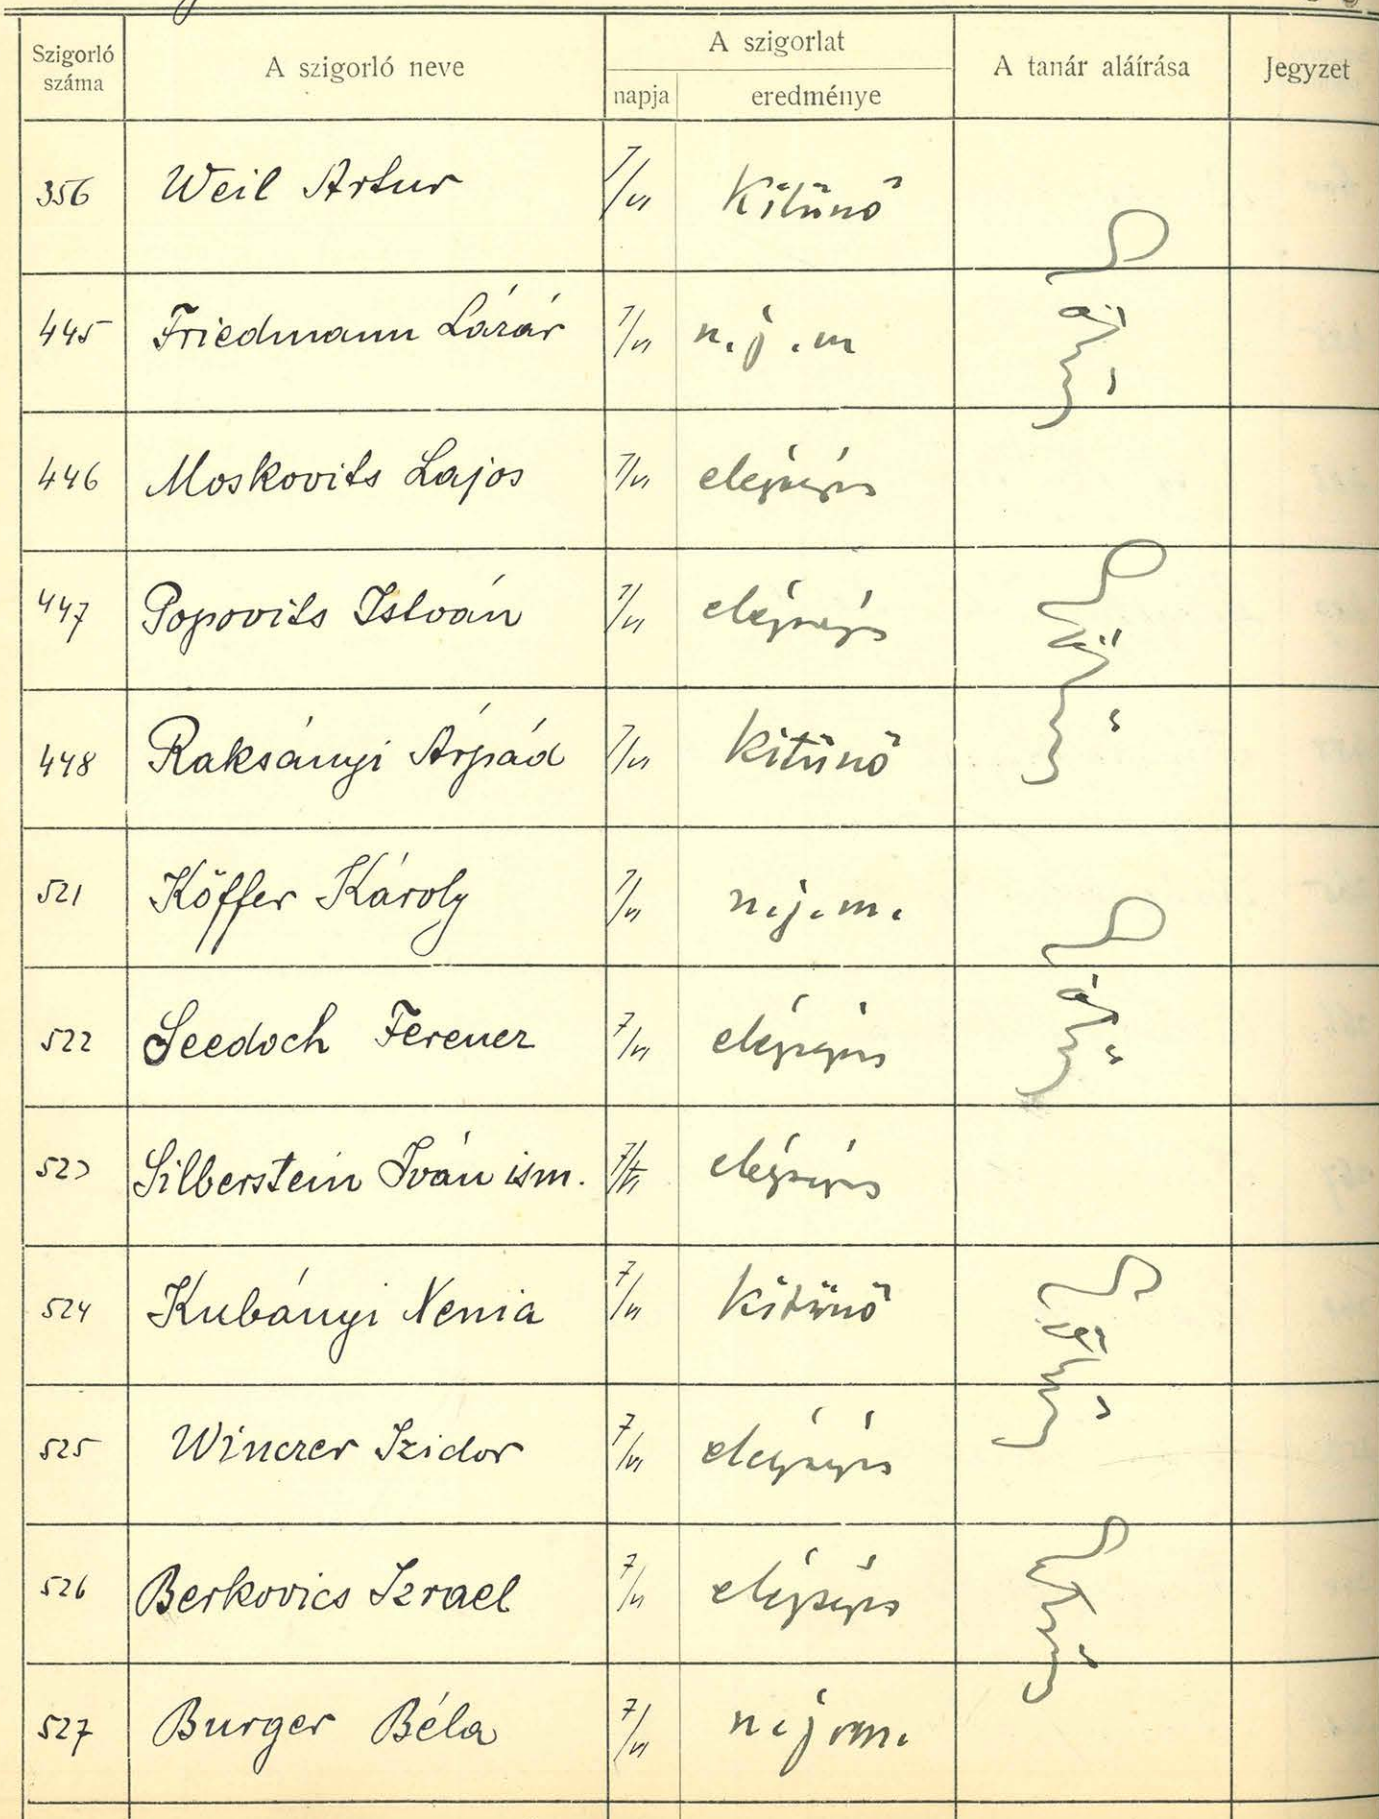 Szigorló száma A szigorló neve A szigorlat A tanár aláírása Jegyzet
napja eredménye
356 Weil Artur 7/VI Kitünő
445 Friedmann Lázár 7/VI n.j.m
446 Moskovits Lajos 7/VI elégséges
447 Popovits István 7/VI elégséges
448 Raksányi Árpád 7/VI kitünő
521 Köffer Károly 7/VI n.j.m.
522 Seedoch Ferencz 7/VI elégséges
523 Silberstein Iván ism. 7/VI elégséges
524 Kubányi Xenia 7/VI kitünő
525 Winczer Izidor 7/VI elégséges
526 Berkovics Izrael 7/VI elégséges
527 Burger Béla 7/VI n.j.m.